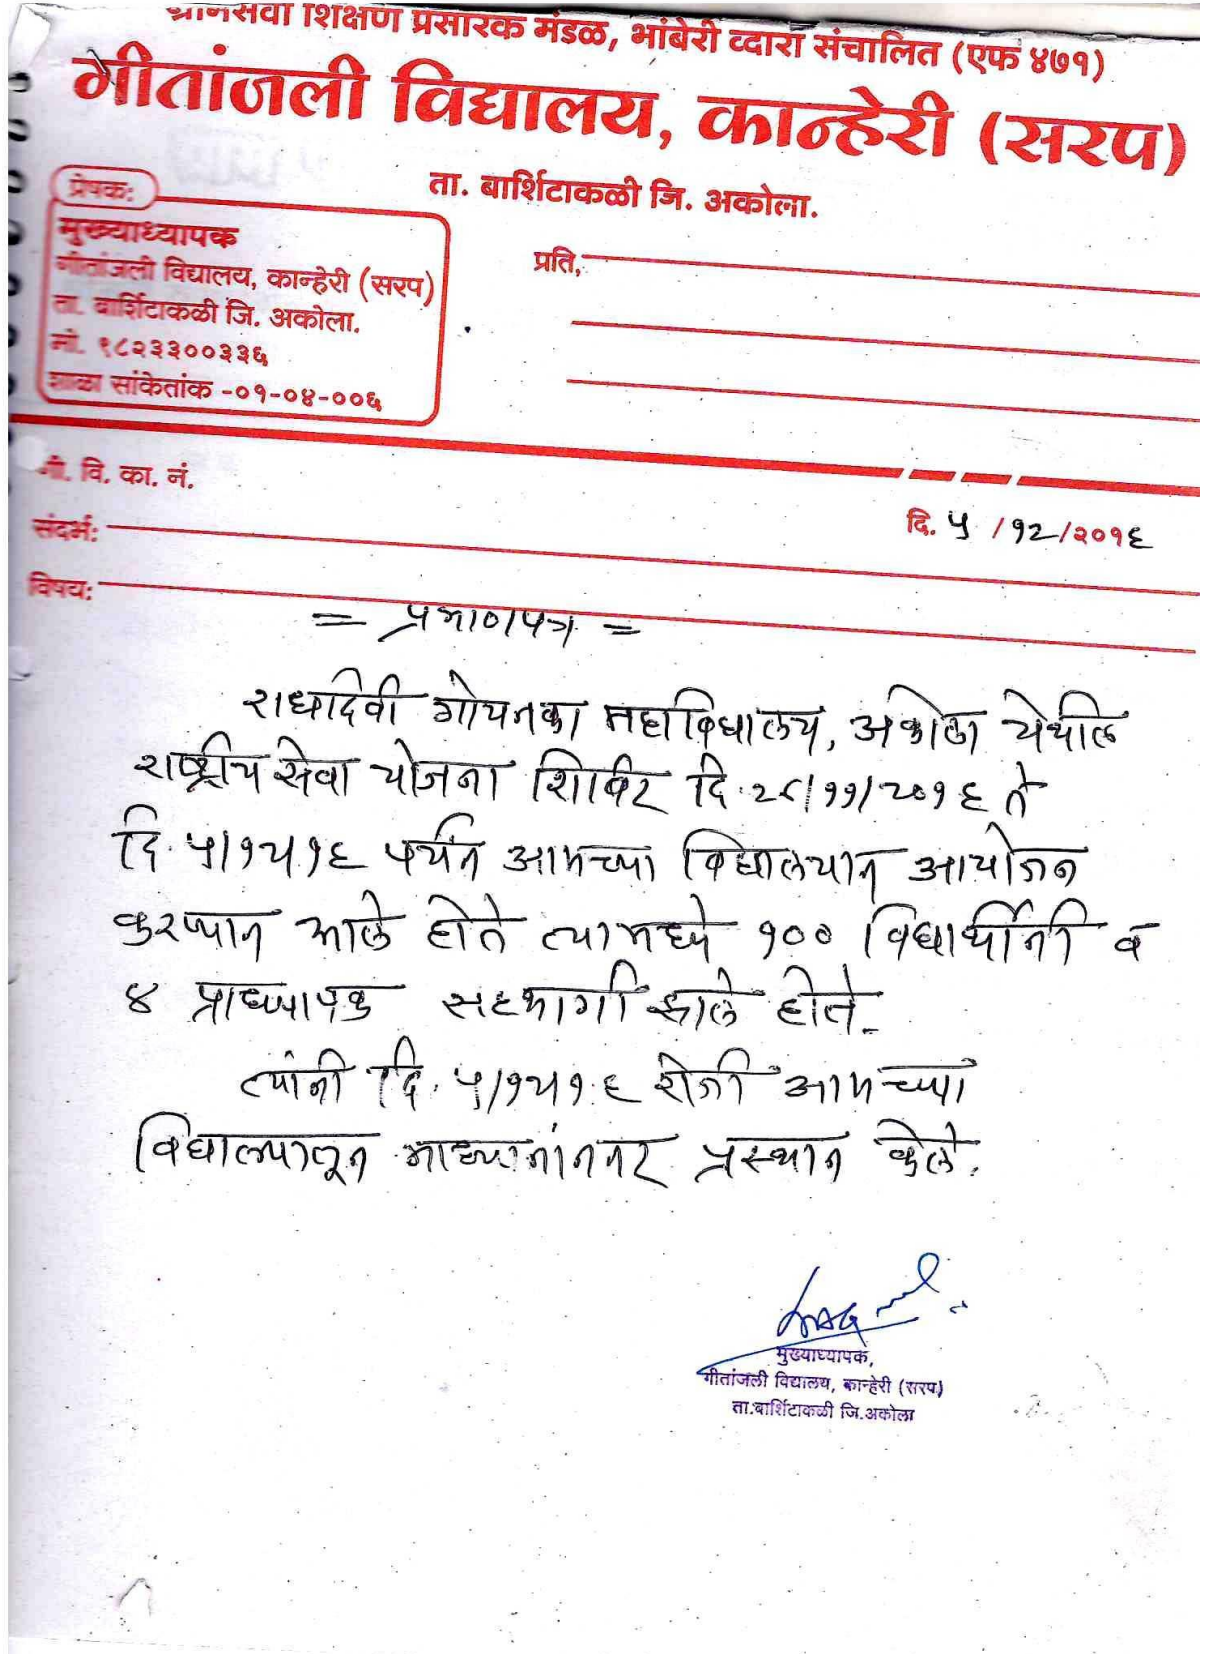 ग्रामसेवा शिक्षण प्रसारक मंडळ, भांबेरी व्दारा संचालित (एफ ४७१)
गीतांजली विद्यालय, कान्हेरी (सरप)
ता. बार्शिटाकळी जि. अकोला.
प्रेषक:
मुख्याध्यापक
गीतांजली विद्यालय, कान्हेरी (सरप)
ता. बार्शिटाकळी जि. अकोला.
मो. ९८२३३००३३६
शाळा सांकेतांक -०१-०४-००६
प्रति,
गी. वि. का. नं.
दि. ५ /१२/२०१६
संदर्भ:
विषय:
= प्रमाणपत्र =
राधादेवी गोयनका महाविद्यालय, अकोला येथील
राष्ट्रीय सेवा योजना शिबिर दि. २८/११/२०१६ ते
दि. ५/१२/१६ पर्यंत आमच्या विद्यालयात आयोजन
करण्यात आले होते त्यामध्ये १०० विद्यार्थीनी व
४ प्राध्यापक सहभागी झाले होते.
त्यांनी दि. ५/१२/१६ रोजी आमच्या
विद्यालयातून माध्यानांनतर प्रस्थान केले.
मुख्याध्यापक,
गीतांजली विद्यालय, कान्हेरी (सरप)
ता.बार्शिटाकळी जि.अकोला